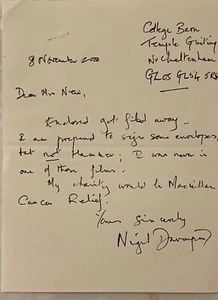 College Barn
Temple Guiting
Nr Cheltenham
GLOS GL54 5RS
8 November 2000
Dear Mrs New,
Enclosed got filed away.
I am prepared to sign some envelopes,
but not Hammer; I was never in
one of those films.
My charity would be Macmillan
Cancer Relief.
Yours Sincerely
Nigel Davenport